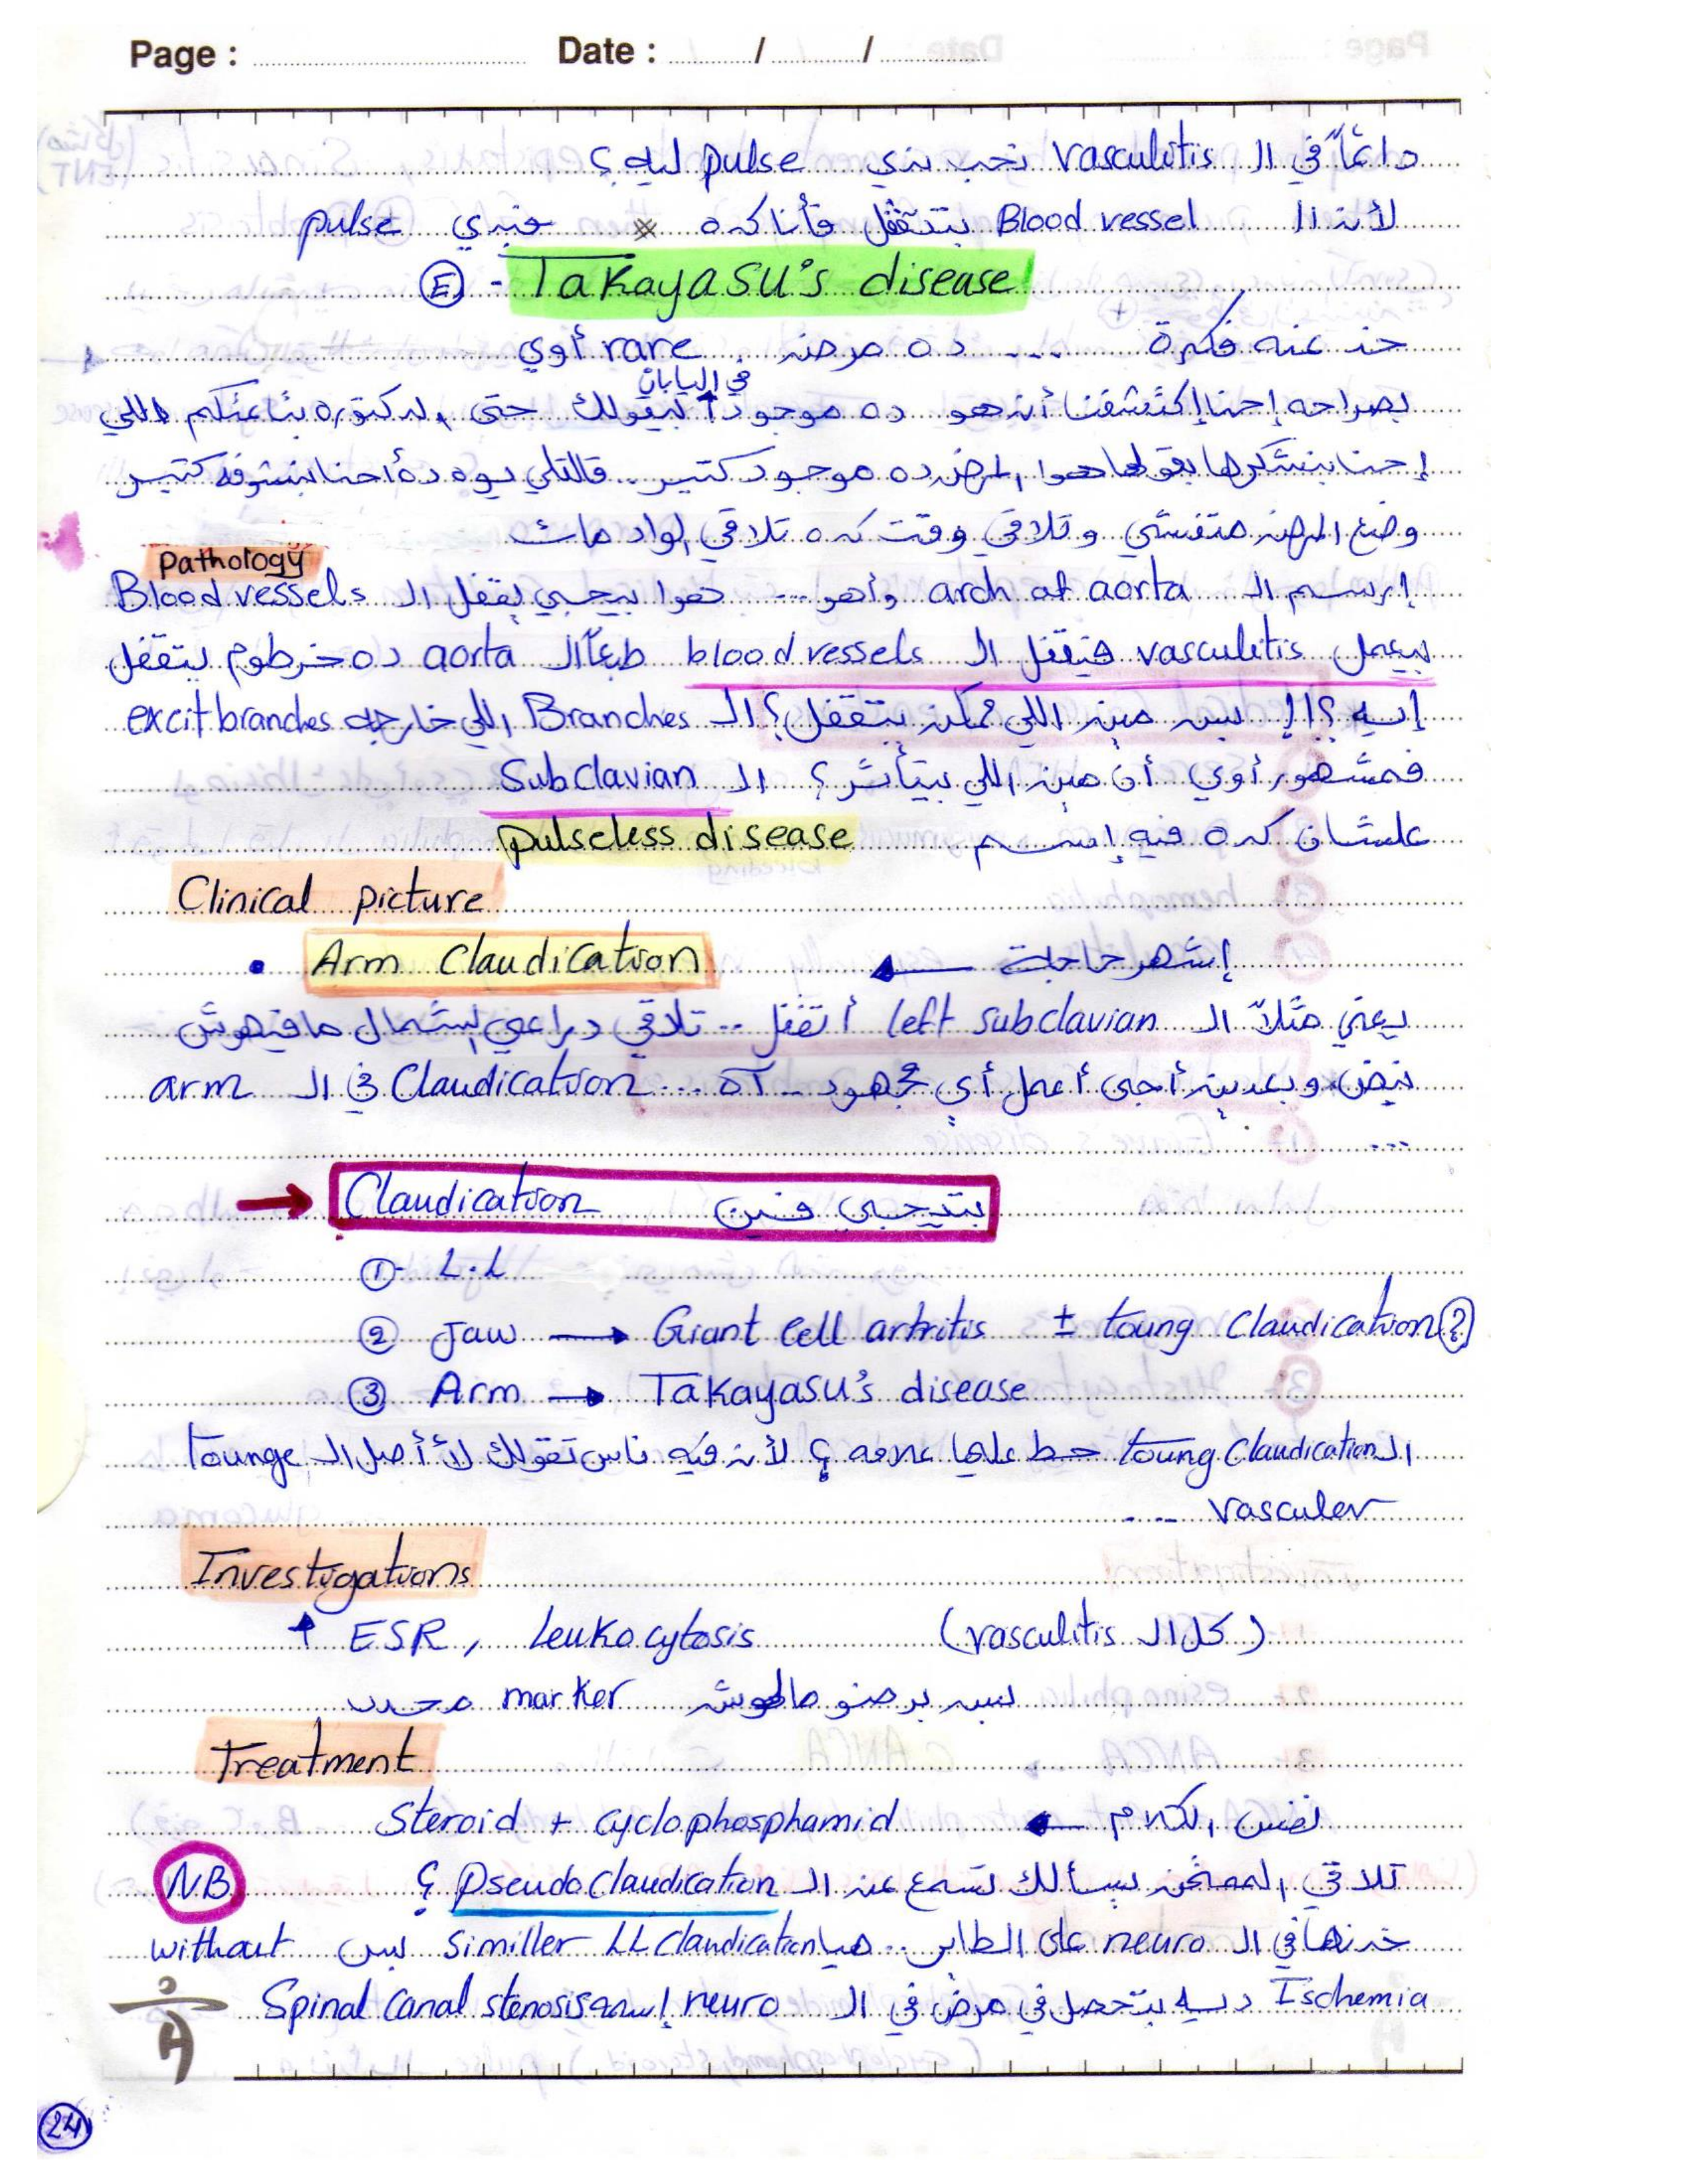 Page : Date : / /
دائماً في ال vasculitis نحب ندي pulse ليه ؟
لأن ال Blood vessel بتتقفل فأنا كده هندي pulse
(E) - Takayasu's disease
خد عنه فكرة .... ده مرض rare أوي
في اليابان
بصراحه إحنا إكتشفنا أن هو ده موجود لبنقولك حتى الدكتوره بتاعتكم اللي
إحنا بنشكرها بقولها هوا المرض ده موجود كتير .. قالتلي يوه ده أحنا بنشوفه كتير
وضع المرض متفشي وتلاقي وقت كده تلاقي الواد مات
Pathology
إرسم ال arch of aorta وأهو ... هوا بيجي يقفل ال Blood vessels
بيعمل vasculitis فيتقفل ال blood vessels طبعاً ال aorta ده خرطوم يتقفل
إيه ؟!! بس مين اللي ممكن يتقفل ؟ ال Branches اللي خارجه excit branches
فمشهور أوي أن مين اللي بيتأثر ؟ ال Subclavian
علشان كده فيه إسم pulseless disease
Clinical picture
• Arm Claudication ← إشهر حاجة
يعني مثلاً ال left subclavian أتقفل .. تلاقي دراعي الشمال مافيهوش
نبض وبعدين أجى أعمل أي مجهود .. آه ... Claudication في ال arm
...
→ Claudication بتيجي فين
① - L.L
② Jaw → Giant Cell artritis ± toung Claudication (?)
③ Arm → Takayasu's disease
ال toung Claudication حط عليها علامه ؟ لأن فيه ناس تقولك لأ أصل ال tounge
vasculer ....
Investigations
↑ ESR, Leukocytosis (كل ال vasculitis)
بس برضو مالهوش marker محدد
Treatment
نفس الكلام ← Steroid + cyclophosphamid
NB تلاقي الممتحن بيسألك تسمع عن ال pseudoclaudication ؟
خدنها في ال neuro على الطاير .. هيا similler LL claudication بس without
Ischemia ديه بتحصل في مرض في ال neuro إسمه Spinal canal stenosis
24